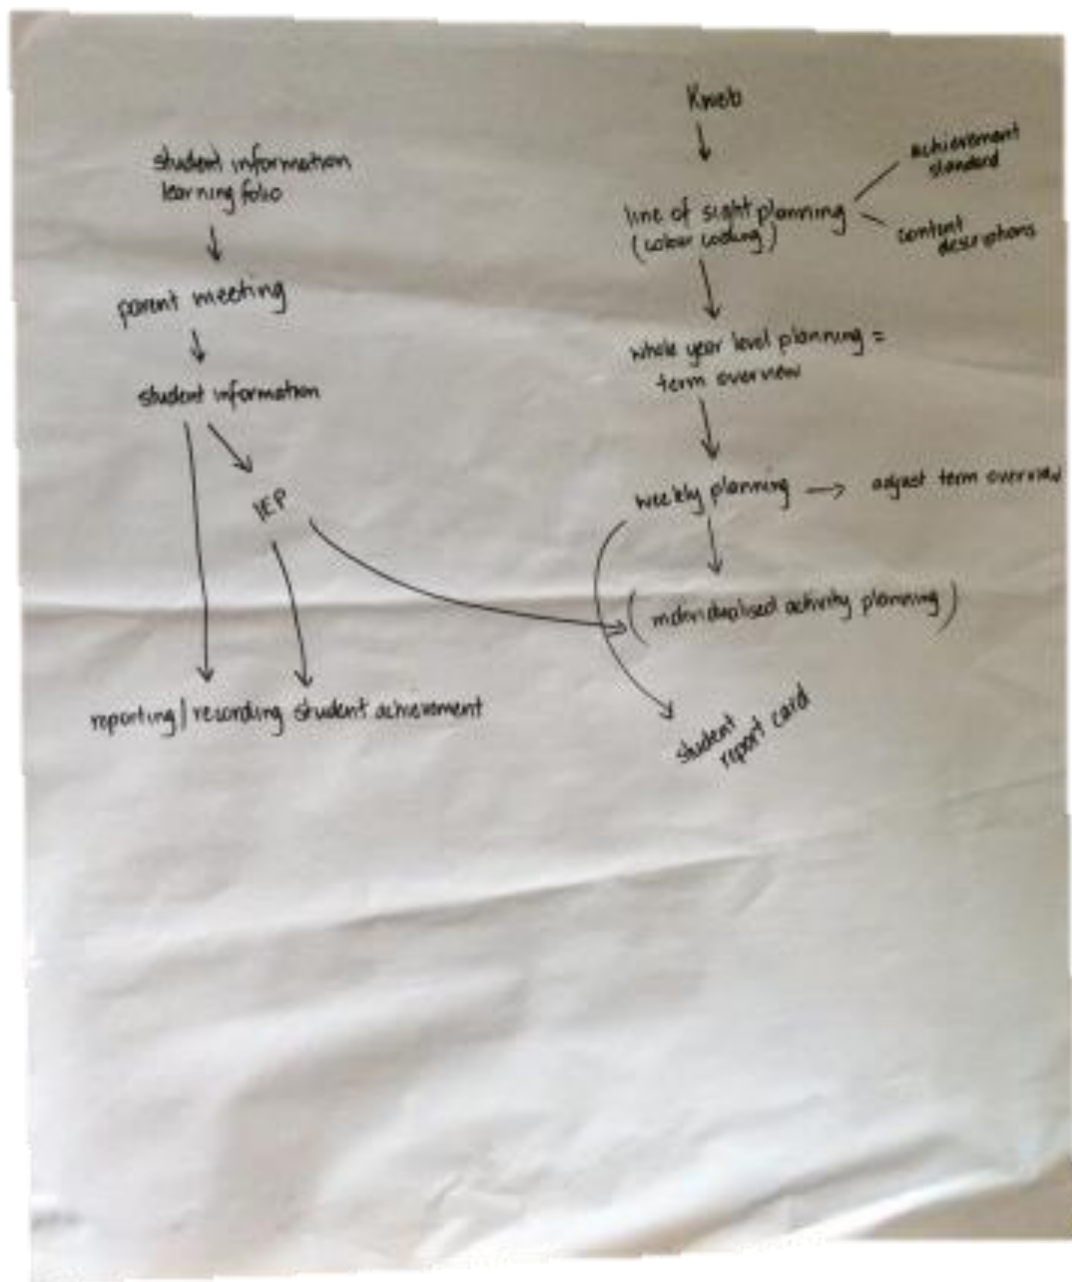 student information
learning folio
parent meeting
student information
IEP
reporting/recording student achievement
Kmeb
line of sight planning
(colour coding)
achievement
standard
content
descriptions
whole year level planning =
term overview
weekly planning → adjust term overview
(individualised activity planning)
student
report card